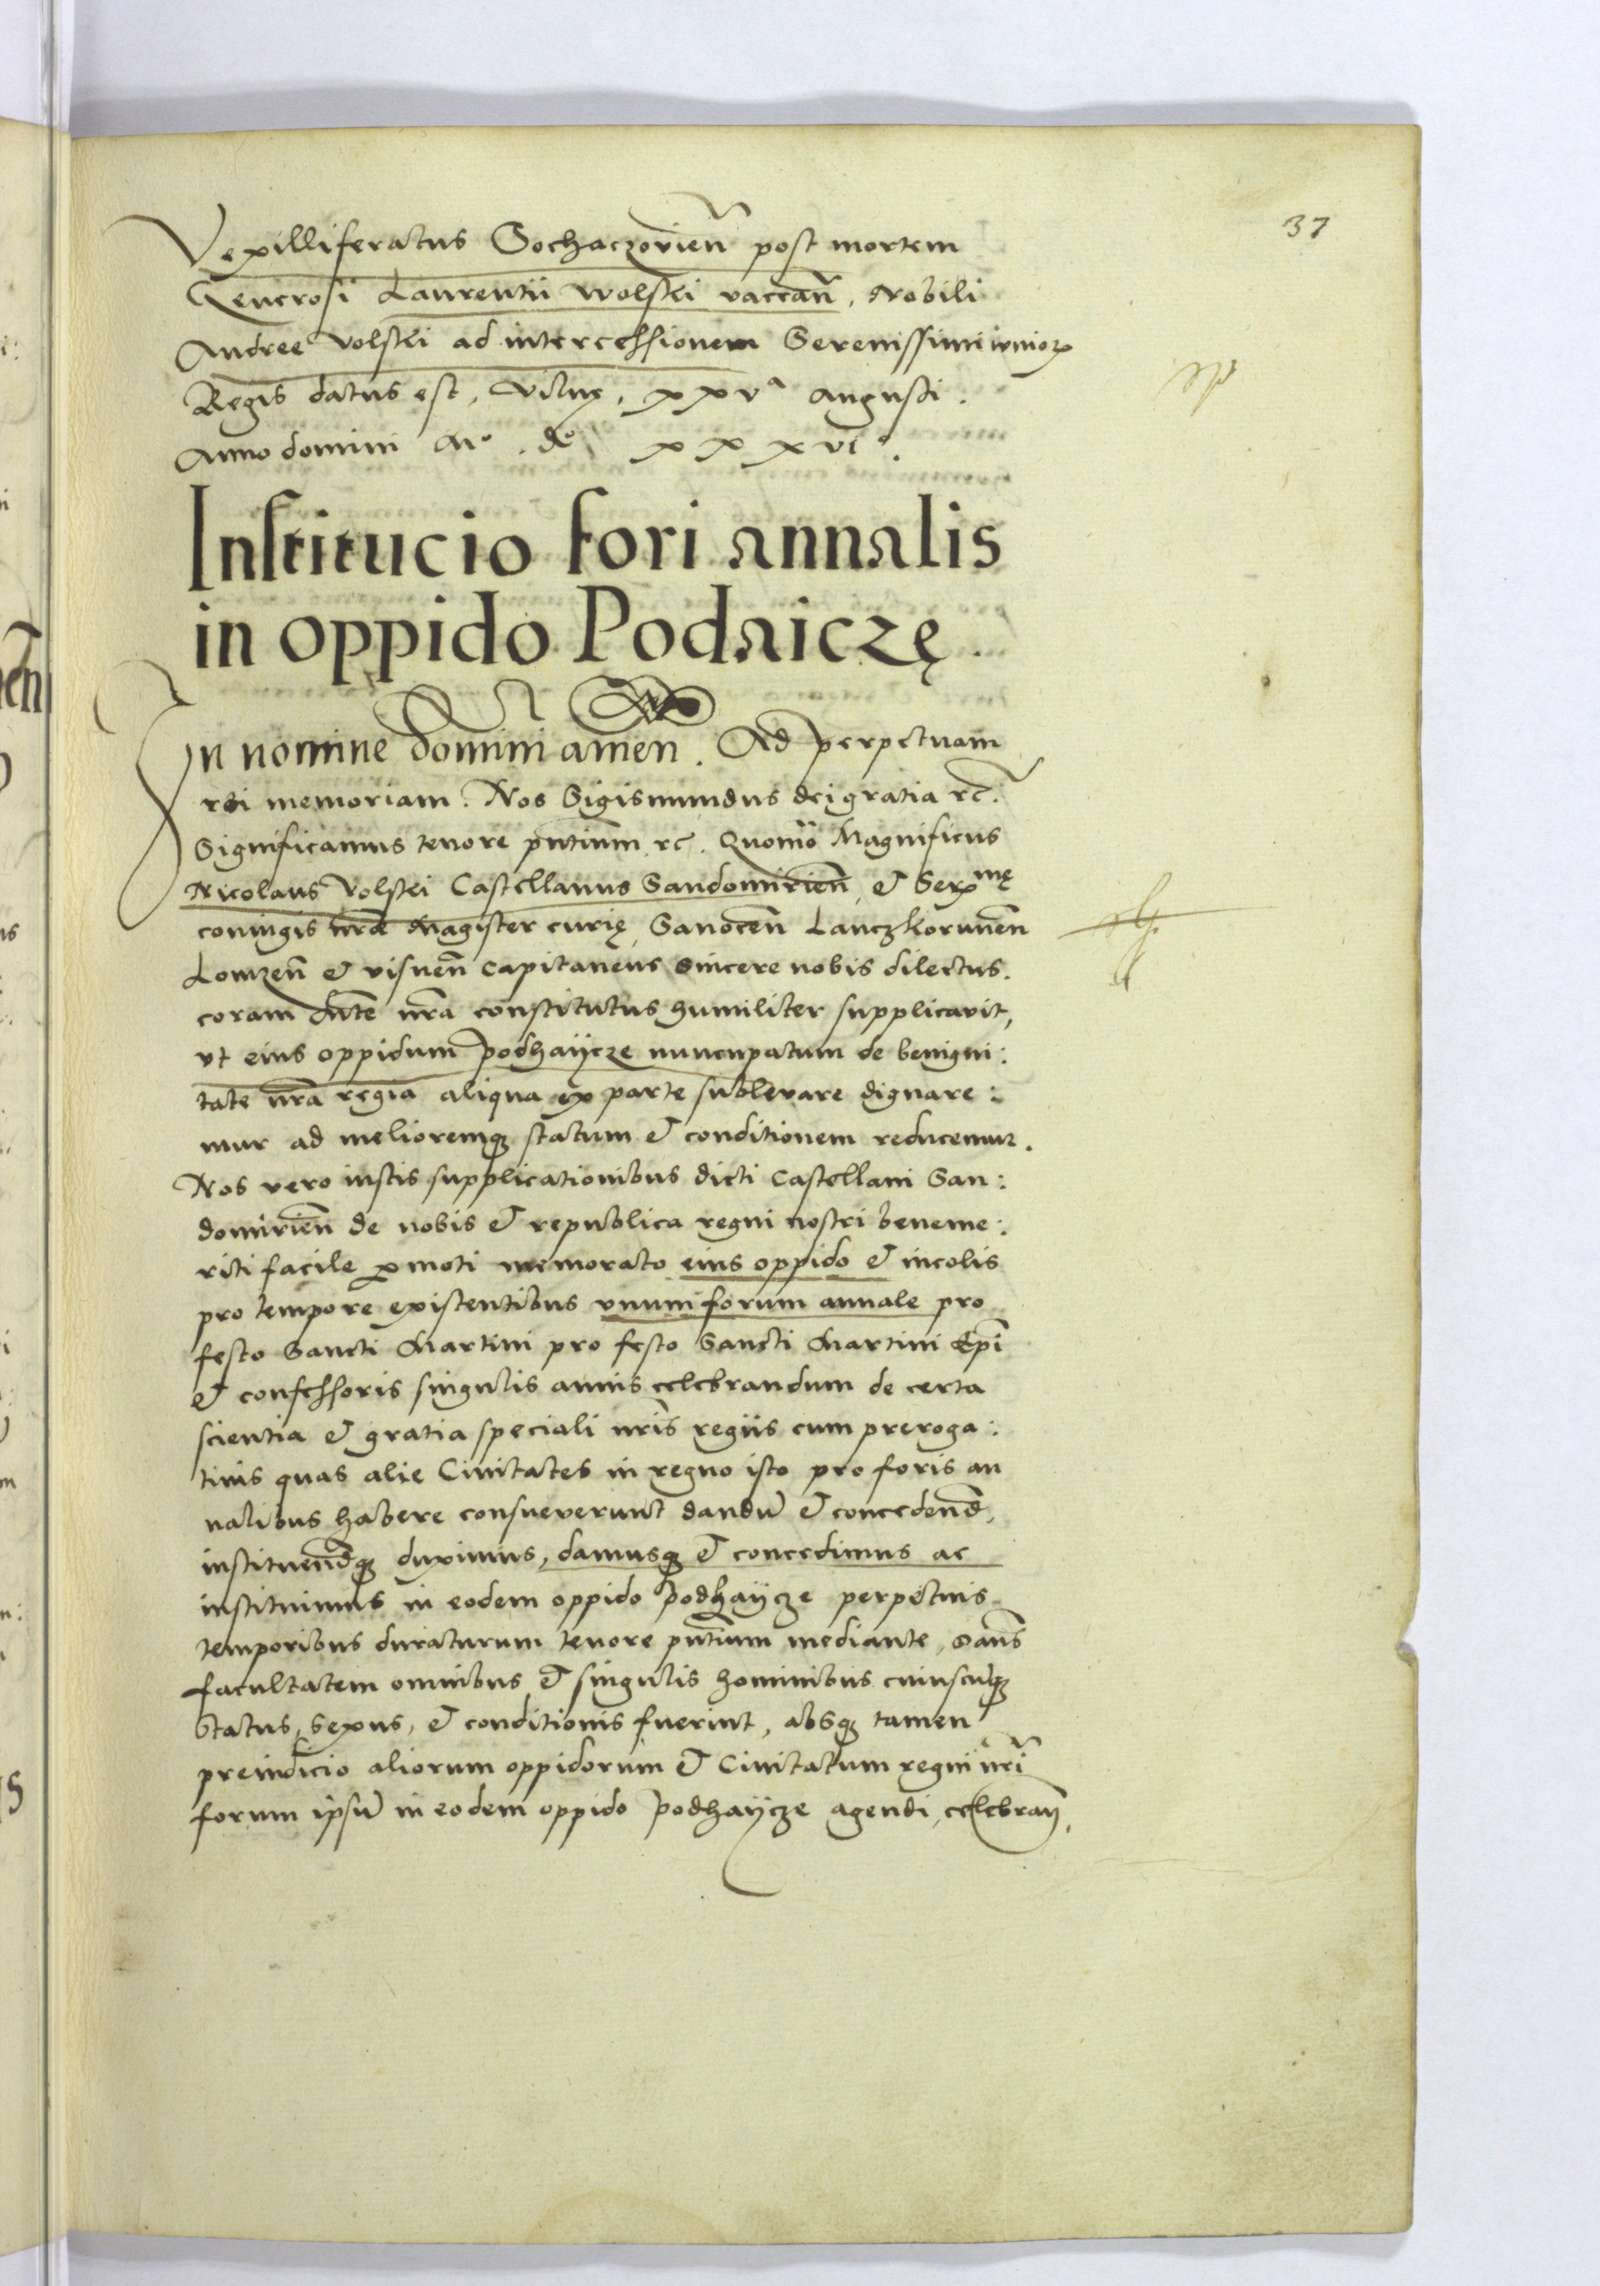 37
Vexilliferatus Sochaczovien̄ post mortem
Generosi Laurentii Wolski vaccan̄, Nobili
Andree Volski ad intercessionem Serenissimi iunior̄
Regis datus est, Vilnę, xxvᵃ Augusti.
Anno domini Mº. dº xxxviº.
Institucio fori annalis
in oppido Podaiczę
In nomine domini amen. Ad perpetuam
rei memoriam. Nos Sigismundus dei gratia rc̄.
Significamus tenore pn̄tium rc̄. Quomō Magnificus
Nicolaus Volski Castellanus Sandomirien̄, et Serᵐę
coniugis nr̄æ Magister curię, Sanocen̄ Lanczkorunen̄
Lomzen̄ et visnen̄ Capitaneus sincere nobis dilectus.
coram M̄te nr̄a constitutus humiliter supplicavit,
vt eius oppidum Podhaycze nuncupatum de benigni:
tate nr̄a regia aliqua ex parte sublevare dignare:
mur ad melioremq̨ statum et conditionem reducemur.
Nos vero iustis supplicationibus dicti Castellani San:
domirien̄ de nobis et republica regni nostri beneme:
riti facile ꝑmoti memorato eius oppido et incolis
pro tempore existentibus vnum forum annale pro
festo Sancti Martini pro festo Sancti Martini Ep̄i
et confessoris singulis annis celebrandum de certa
scientia et gratia speciali nr̄is regiis cum preroga:
tiuis quas alie Ciuitates in regno isto pro foris an
nalibus habere consueverunt dandū et concedend̄,
instituend̄q̨ duximus, damusq̨ et concedimus ac
instituimus in eodem oppido Podhaycze perpetuis
temporibus duraturum tenore pn̄tium mediante, dan̄s
facultatem omnibus et singulis hominibus cuiuscūq̨
status, sexus, et conditionis fuerint, absq̨ tamen
preiudicio aliorum oppidorum et Ciuitatum regni nr̄i
forum ipsū in eodem oppido Podhaycze agendi, celebran̄,